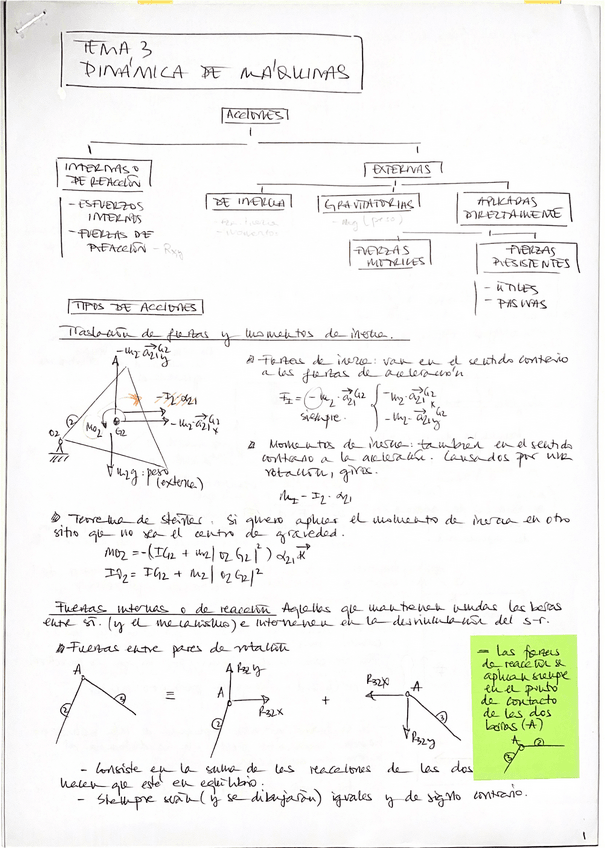 TEMA 3
DINÁMICA DE MÁQUINAS
ACCIONES
INTERNAS O
DE REACCIÓN
- ESFUERZOS
INTERNOS
- FUERZAS DE
REACCIÓN
EXTERNAS
DE INERCIA
GRAVITATORIAS
- mg (peso)
APLICADAS
DIRECTAMENTE
FUERZAS
MOTRICES
FUERZAS
RESISTENTES
- ÚTILES
- PASIVAS
TIPOS DE ACCIONES
Traslación de fuerzas y momentos de inercia.
Fuerzas de inercia: van en el sentido contrario
a las fuerzas de aceleración
siempre.
Momentos de inercia: también en el sentido
contrario a la aceleración. Causados por una
rotación, giros.
MI = -I2 · α21
O2
MO2
G2
2
m2g: peso
(externa)
Teorema de Steiner. Si quiero aplicar el momento de inercia en otro
sitio que no sea el centro de gravedad.
MO2 = -(IG2 + m2|O2G2|²) α21 K
IO2 = IG2 + m2|O2G2|²
Fuerzas internas o de reacción Aquellas que mantienen unidas las barras
entre sí. (y el mecanismo) e intervienen en la desvinculación del s-r.
Fuerzas entre pares de rotación
A
2
3
≡
R32y
A
R32x
2
+
R32x
A
R32y
3
= Las fuerzas
de reacción se
aplican siempre
en el punto
de contacto
de las dos
barras (A)
A
2
3
- Consiste en la suma de las reacciones de las dos
hacen que esté en equilibrio.
- Siempre serán (y se dibujarán) iguales y de signo contrario.
1